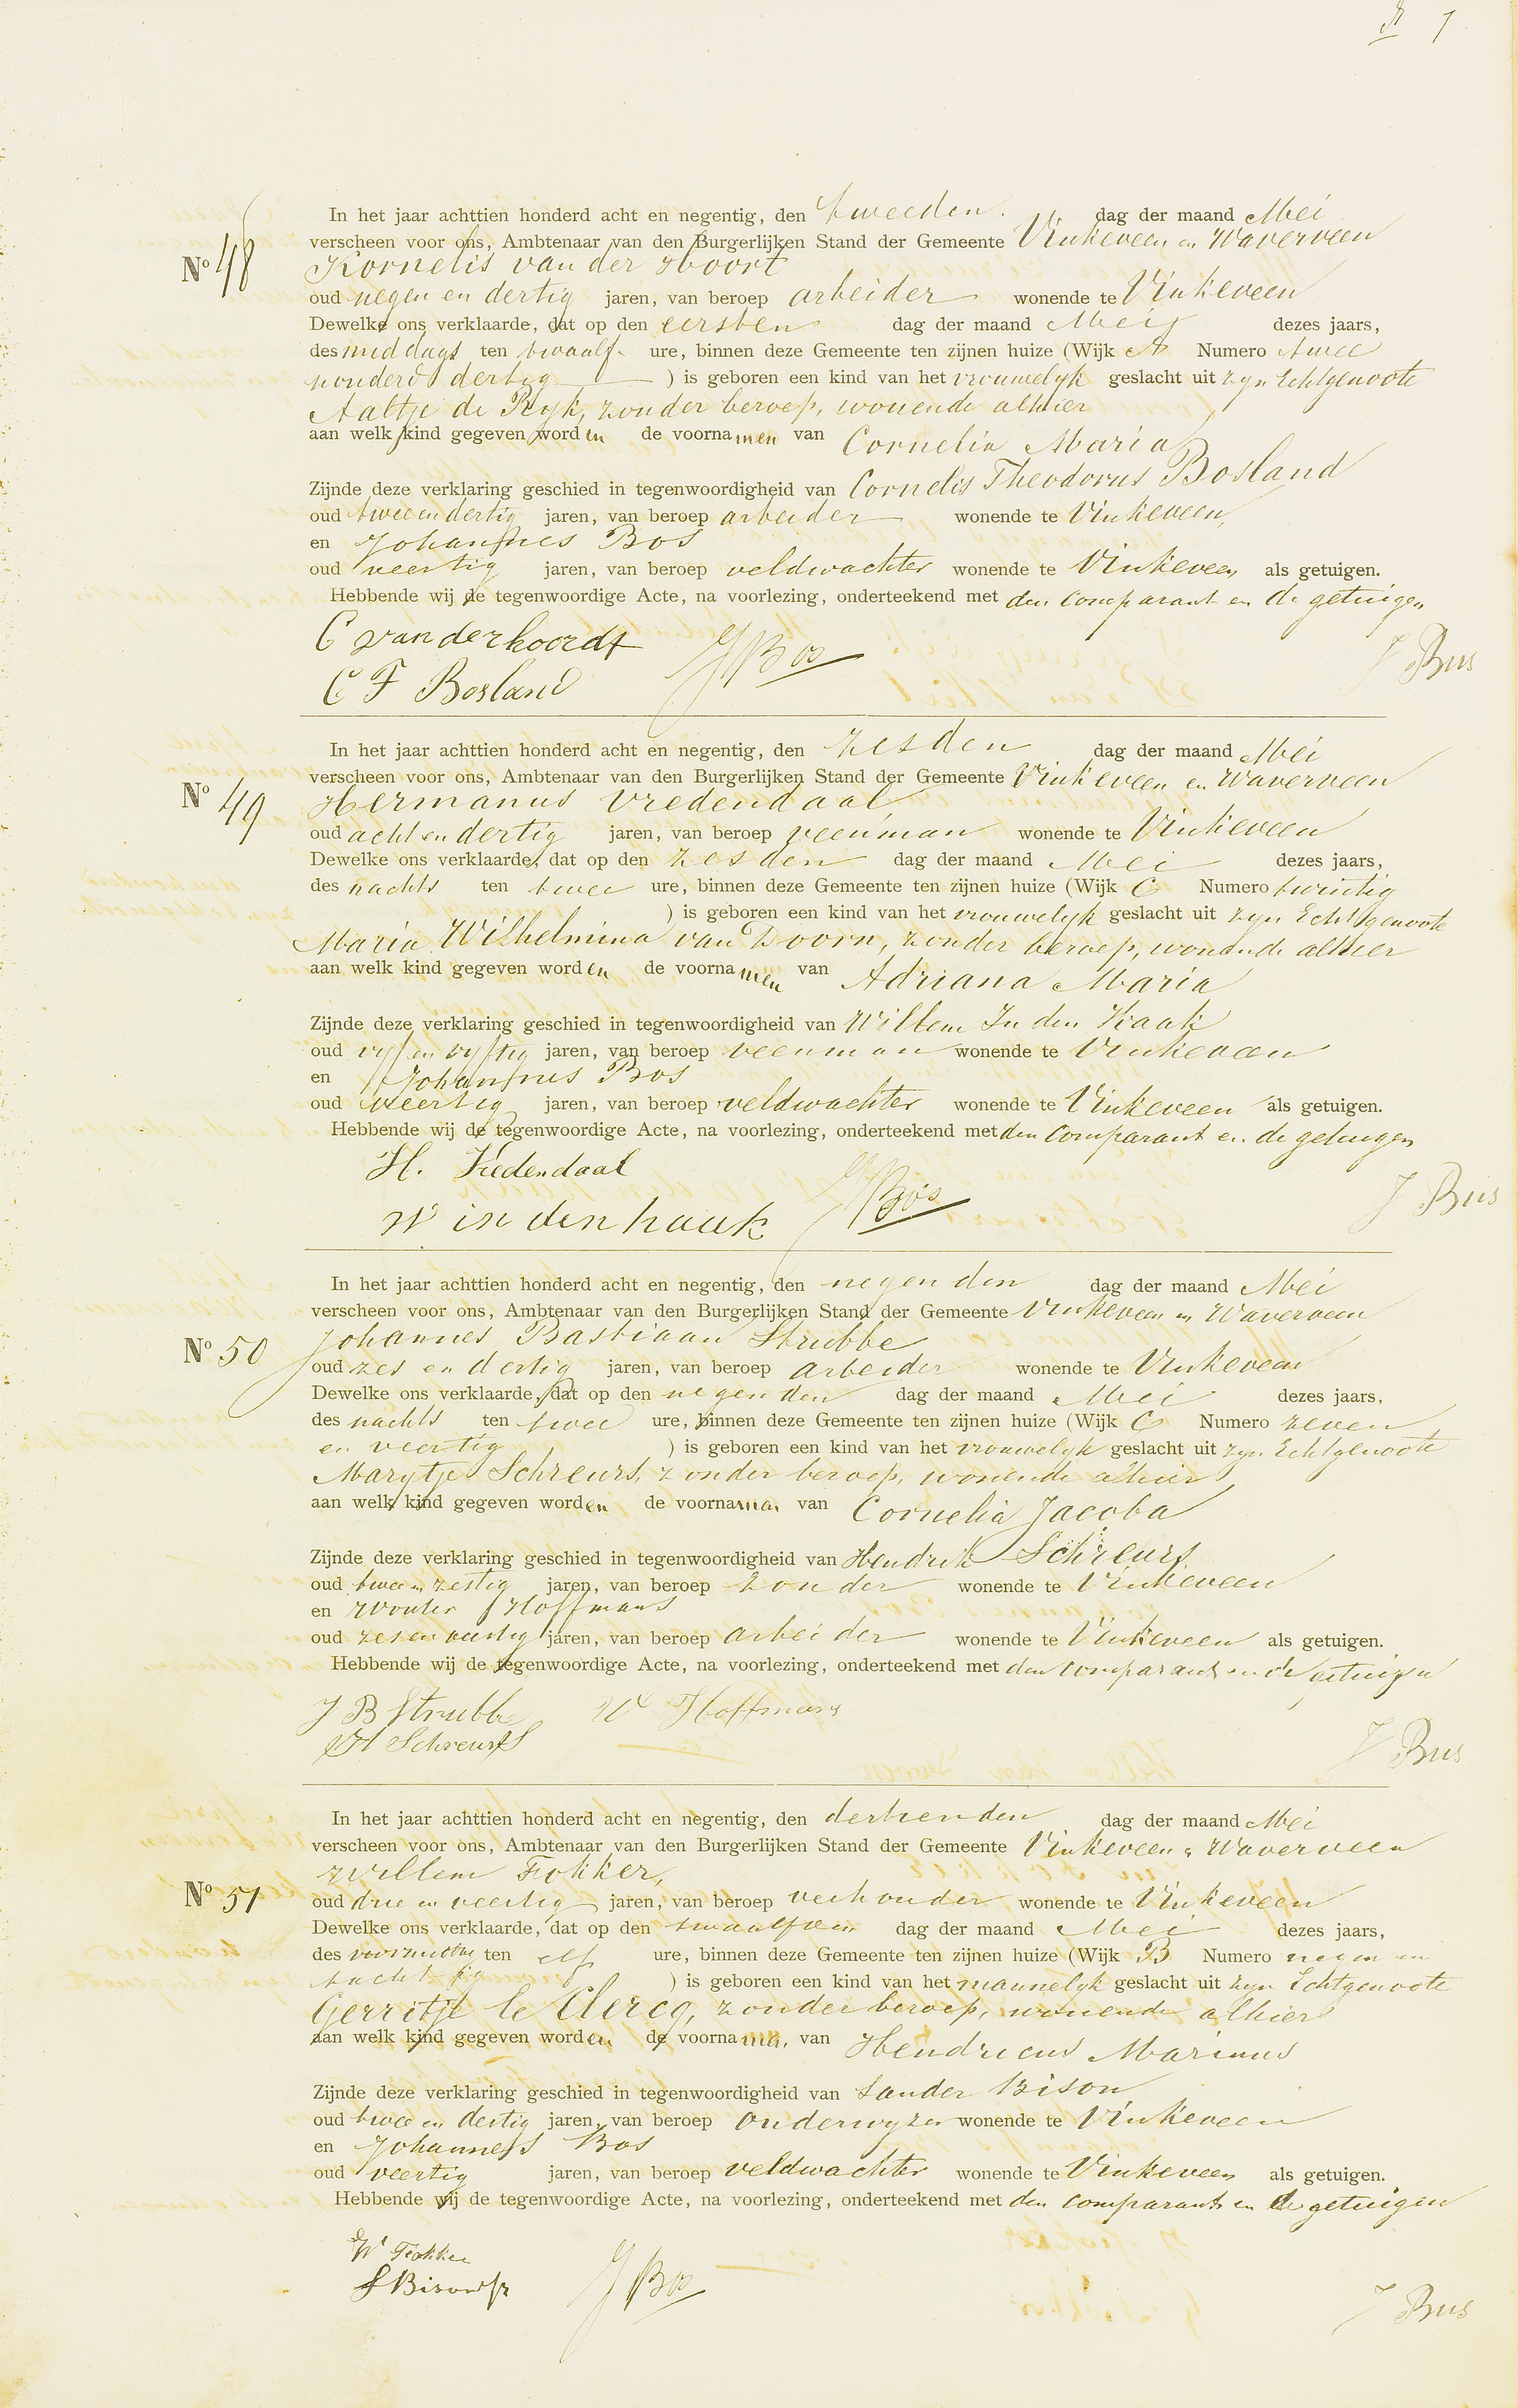 7
In het jaar achttien honderd acht en negentig, den tweeden dag der maand Mei
verscheen voor ons, Ambtenaar van den Burgerlijken Stand der Gemeente Vinkeveen en Waverveen
No 48 Kornelis van der Hoort
oud negen en dertig jaren, van beroep arbeider wonende te Vinkeveen
Dewelke ons verklaarde, dat op den eersten dag der maand Mei dezes jaars,
des middags ten twaalf ure, binnen deze Gemeente ten zijnen huize (Wijk A Numero twee
honderd dertig ) is geboren een kind van het vrouwelyk geslacht uit zyn Echtgenoote
Aaltje de Ryk, zonder beroep, wonende alhier
aan welk kind gegeven worden de voornamen van Cornelia Maria
Zijnde deze verklaring geschied in tegenwoordigheid van Cornelis Theodorus Bosland
oud twee en dertig jaren, van beroep arbeider wonende te Vinkeveen,
en Johannes Bos
oud veertig jaren, van beroep veldwachter wonende te Vinkeveen als getuigen.
Hebbende wij de tegenwoordige Acte, na voorlezing, onderteekend met den Comparant en de getuigen
C van der hoordt JBos J Bus
C T Bosland
In het jaar achttien honderd acht en negentig, den zesden dag der maand Mei
verscheen voor ons, Ambtenaar van den Burgerlijken Stand der Gemeente Vinkeveen en Waverveen
No 49 Hermanus Vredendaal
oud acht en dertig jaren, van beroep veenman wonende te Vinkeveen
Dewelke ons verklaarde, dat op den zesden dag der maand Mei dezes jaars,
des nachts ten twee ure, binnen deze Gemeente ten zijnen huize (Wijk C Numero twintig
) is geboren een kind van het vrouwelyk geslacht uit zyn Echtgenoote
Maria Wilhelmina van Doorn, zonder beroep, wonende alhier
aan welk kind gegeven worden de voornamen van Adriana Maria
Zijnde deze verklaring geschied in tegenwoordigheid van Willem In den Haak
oud vyf en vyftig jaren, van beroep veenman wonende te Vinkeveen
en Johannes Bos
oud veertig jaren, van beroep veldwachter wonende te Vinkeveen als getuigen.
Hebbende wij de tegenwoordige Acte, na voorlezing, onderteekend met den Comparant en de getuigen
H. Vredendaal JBos J Bus
W in den haak
In het jaar achttien honderd acht en negentig, den negenden dag der maand Mei
verscheen voor ons, Ambtenaar van den Burgerlijken Stand der Gemeente Vinkeveen en Waverveen
No 50 Johannes Bastiaan Strubbe
oud zes en dertig jaren, van beroep arbeider wonende te Vinkeveen
Dewelke ons verklaarde, dat op den negenden dag der maand Mei dezes jaars,
des nachts ten twee ure, binnen deze Gemeente ten zijnen huize (Wijk C Numero zeven
en veertig ) is geboren een kind van het vrouwelyk geslacht uit zyn Echtgenoote
Marytje Schreurs, zonder beroep, wonende alhier
aan welk kind gegeven worden de voornamen van Cornelia Jacoba
Zijnde deze verklaring geschied in tegenwoordigheid van Hendrik Schreurs
oud twee en zestig jaren, van beroep zonder wonende te Vinkeveen
en Wouter Hoffmans
oud zes en veertig jaren, van beroep arbeider wonende te Vinkeveen als getuigen.
Hebbende wij de tegenwoordige Acte, na voorlezing, onderteekend met den Comparant en de getuigen
J B Strubbe W Hoffmans
H Schreurs J Bus
In het jaar achttien honderd acht en negentig, den dertienden dag der maand Mei
verscheen voor ons, Ambtenaar van den Burgerlijken Stand der Gemeente Vinkeveen & Waverveen
Willem Fokker,
No 51 oud drie en veertig jaren, van beroep veehouder wonende te Vinkeveen
Dewelke ons verklaarde, dat op den twaalfden dag der maand Mei dezes jaars,
des voormiddags ten elf ure, binnen deze Gemeente ten zijnen huize (Wijk B Numero negen en
tachtig ) is geboren een kind van het mannelyk geslacht uit zyn Echtgenoote
Gerritje le Clercq, zonder beroep, wonende alhier
aan welk kind gegeven worden de voornamen van Hendricus Marinus
Zijnde deze verklaring geschied in tegenwoordigheid van Sander Bison
oud twee en dertig jaren, van beroep onderwyzer wonende te Vinkeveen
en Johannes Bos
oud veertig jaren, van beroep veldwachter wonende te Vinkeveen als getuigen.
Hebbende wij de tegenwoordige Acte, na voorlezing, onderteekend met den Comparant en de getuigen
W Fokker
S Bison Jz JBos J Bus